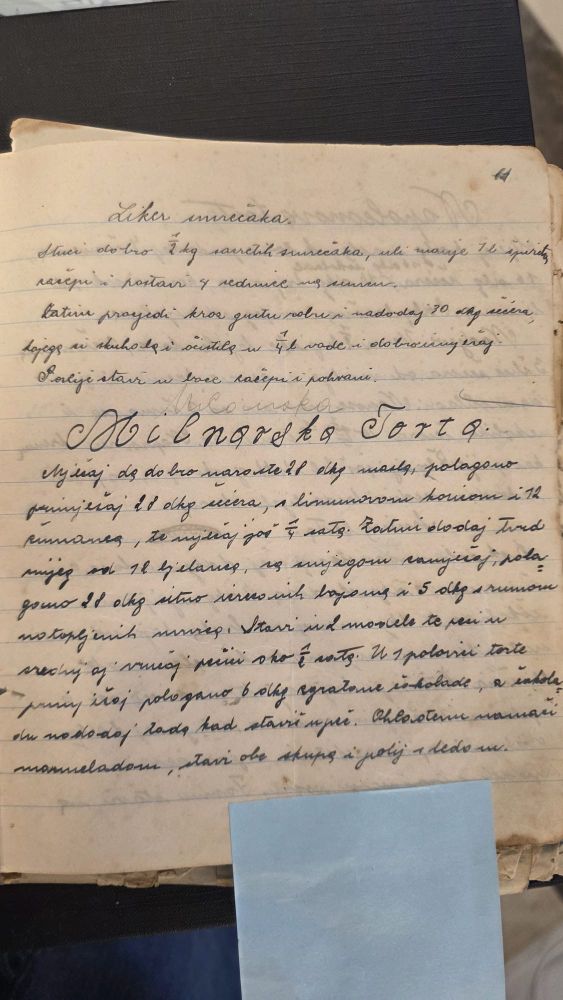 61
Liker smrečaka.
Stuci dobro 1/2 kg smrečaka, uli manje 1 l špirita,
začepi i postavi 4 sedmice na suncu.
Zatim procjedi kroz gustu robu i nadodaj 30 dkg šećera,
kojega si skuhala i očistila u 1/4 l vode i dobro izmješaj.
Poslije stavi u boce začepi i pohrani.
Milanska
Milnarska Torta.
Mješaj da dobro naraste 28 dkg masla, polagano
primješaj 28 dkg šećera, s limunovom koricom i 12
žumanca, te mješaj još 1/4 sata. Zatim dodaj tvrd
snijeg od 12 bjelanca, sa snijegom zamješaj, pola-
gano 28 dkg sitno rezanih bajama i 5 dkg s rumom
natopljenih mrvica. Stavi u 2 modela te peci u
srednjoj vrućoj peći oko 1/2 sata. U 1 polovici torte
primješaj polagano 6 dkg zgratane čokolade, a čokola-
du nadodaj tada kad staviš u peć. Ohlađenu namaži
marmeladom, stavi obe skupa i polij s ledom.